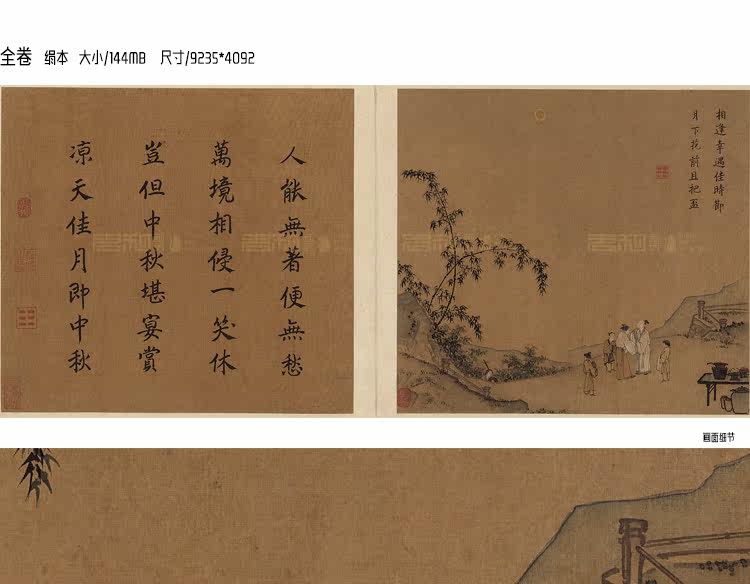 全卷 绢本 大小/144MB 尺寸/9235*4092
相逢幸遇佳時節
月下花前且把盃
人能無著便無愁
萬境相侵一笑休
豈但中秋堪宴賞
凉天佳月即中秋
画面细节